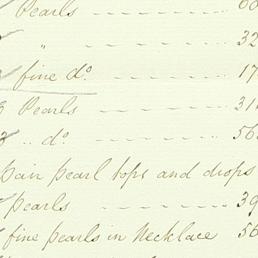 Pearls
" 32
fine do. 17
Pearls 31
" do. 56
pair pearl tops and drops
pearls 39
fine pearls in Necklace 56